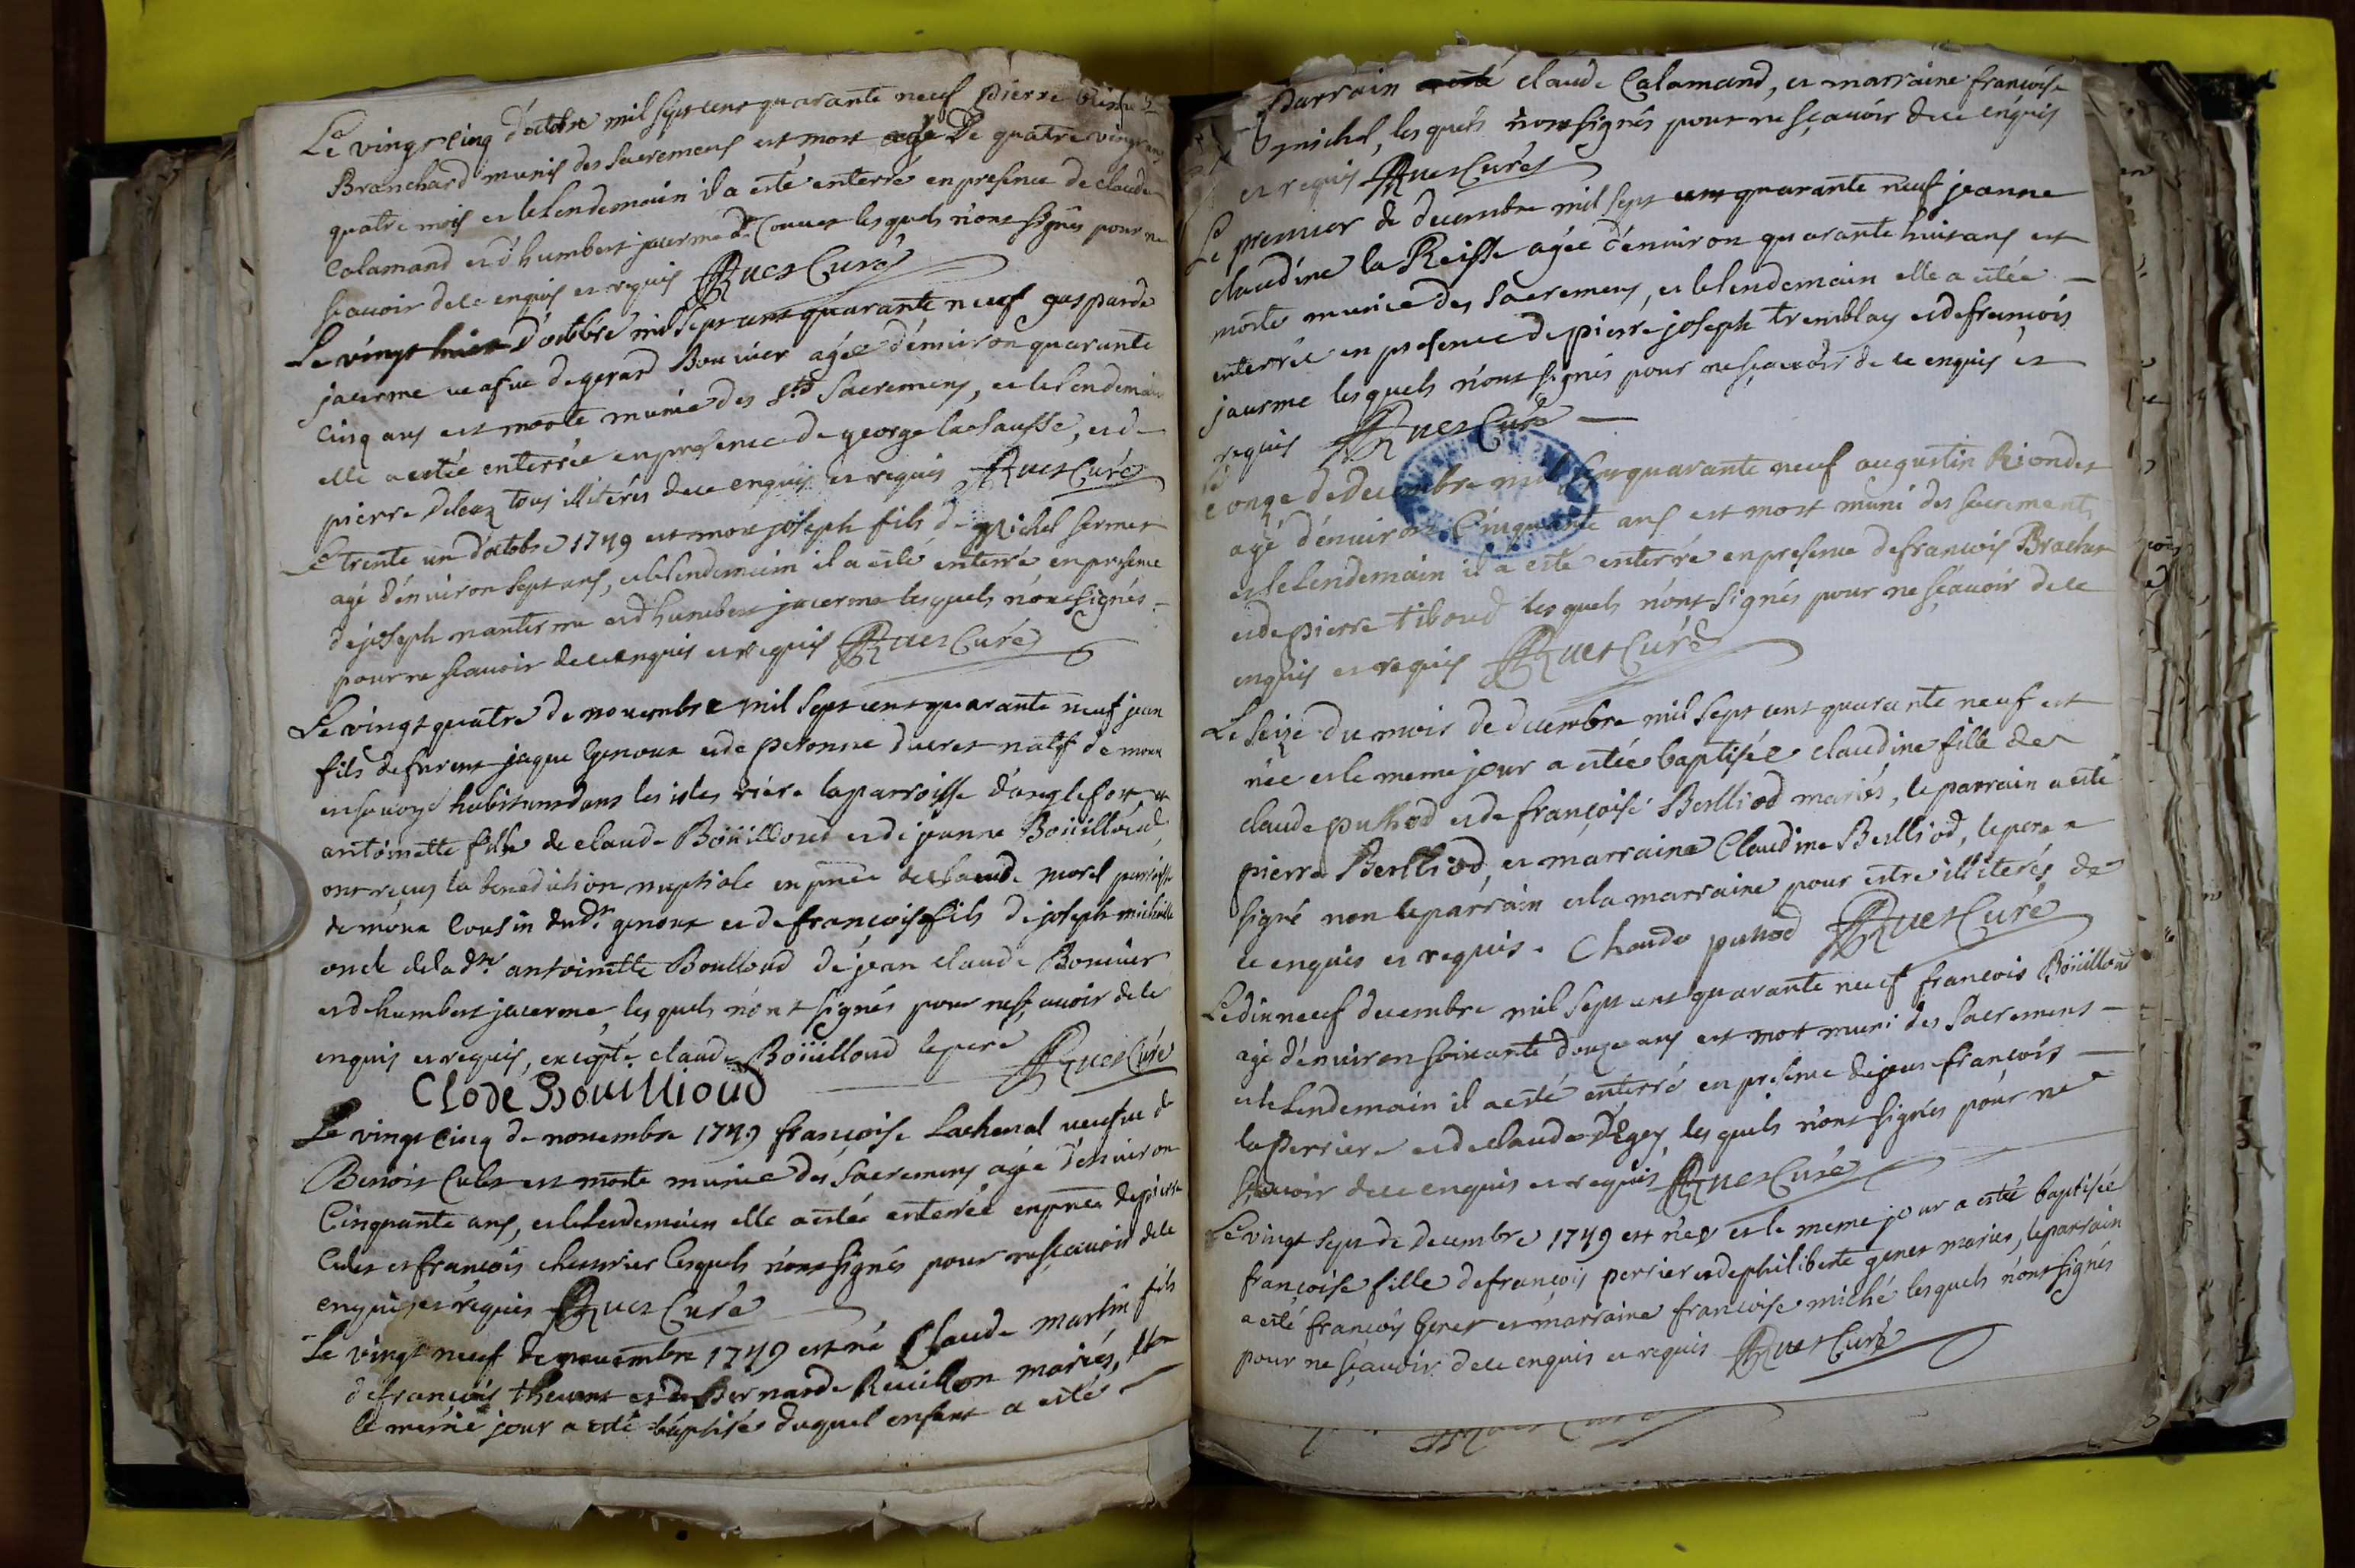 Le vingt cinq d'octobre mil sept cent quarante neuf pierre
Branchard munis des sacremens est mort agé De quatre vingt ans
quatre mois et le lendemain il a esté enterré en presence de claude
Calamand et d'humbert jacerme lesquels n'ont signés pour ne
scavoir de ce enquis et requis Ruet Curé
Le vingt huit d'octobre mil sept cent quarante neuf gasparde
jacerme veufue de gerard Bouvier agée d'environ quarante
cinq ans est morte munie des sts Sacremens, et le lendemain
elle a estée enterrée en presence de george lachausse, et de
pierre tous illiterés de ce enquis et requis Ruet Curé
Le trente un d'octobre 1749 est mort joseph fils de Michel
agé d'environ sept ans, et le lendemain il a esté enterré en presence
de joseph et d'humbert jacerme lesquels n'ont signés
pour ne scavoir de ce enquis et requis Ruet Curé
Le vingt quatre de novembre mil sept cent quarante neuf jean
fils de jaque Genoux et de peronne Ducret natif de
en savoye habitant dans les isles riere la parroisse d'anglefort, et
antoinette fille de claude Boüilloud et de jeanne Boüilloud
ont reçus la benediction nuptiale en pnce de claude morel parroisse
de cousin dudt. genoux et de françois fils de joseph
oncle de ladte antoinette Boulloud de jean claude Bouvier
et d'humbert jacerme, lesquels n'ont signés pour ne sçavoir de ce
enquis et requis, excepté claude Boüilloud le pere Ruet Curé
Clode Bouillioud
Le vingt cinq de novembre 1749 françoise Lachenal veufue de
Benoit Culet est morte munie des sacremens agée d'environ
Cinquante ans, et le lendemain elle a estée enterrée en pnce de pierre
Culet et françois lesquels n'ont signés pour ne scavoir de ce
enquis et requis Ruet Curé
Le vingt neuf de novembre 1749 est né Claude martin fils
de françois et de Bernarde mariés,
le meme jour a esté baptisé duquel enfant a esté
parrain claude Calamand, et marraine françoise
michel, lesquels n'ont signés pour ne sçavoir de ce enquis
et requis Ruet Curé
Le premier de decembre mil sept cent quarante neuf jeanne
claudine la Reisse agée d'environ quarante huit ans est
morte munie des sacremens, et le lendemain elle a estée
enterrée en presence de pierre joseph tremblay et de françois
jaurme lesquels n'ont signés pour ne sçavoir de ce enquis et
requis Ruet Curé
Le onze de decembre mil sept cent quarante neuf augustin Riondet
agé d'environ Cinquante ans est mort muni des sacrements
et le lendemain il a esté enterré en presence de françois Brachet
et de pierre tiboud lesquels n'ont signés pour ne sçavoir de ce
enquis et requis Ruet Curé
Le seize du mois de decembre mil sept cent quarante neuf est
née et le meme jour a estée baptisée claudine fille de
claude puthod et de françoise Berlliod mariés, le parrain a esté
pierre Berlliod, et marraine Claudine Berlliod, le pere a
signé non le parrain et la marraine pour estre illiterés de
ce enquis et requis. Claude puthod Ruet Curé
Le dix neuf decembre mil sept cent quarante neuf francois Boüilloud
agé d'environ soixante douze ans est mort muni des Sacremens
et le lendemain il a esté enterré en presence de jean françois
la perriere et de claude D'Egey lesquels n'ont signés pour ne
sçavoir de ce enquis et requis Ruet Curé
Le vingt sept de Decembre 1749 est née et le meme jour a estée baptisée
françoise fille de françois perrier et de philiberte genet mariés, le parrain
a esté françois Genet et marraine françoise miché lesquels n'ont signés
pour ne sçavoir de ce enquis et requis Ruet Curé